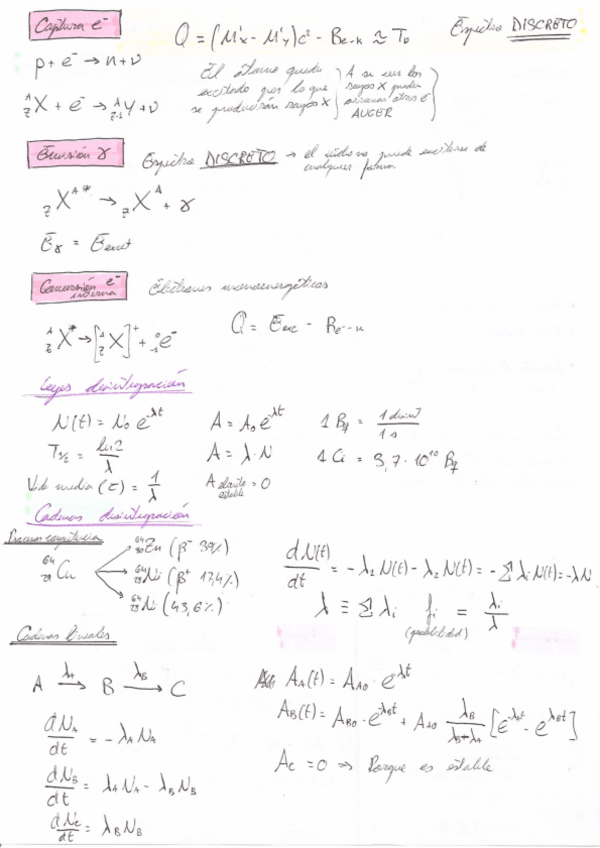 Captura e⁻
Q = (M'x - M'y)c² - Be-k ≈ Tν
Espectro DISCRETO
p + e⁻ → n + ν
ᴬ_Z X + e⁻ → ᴬ_Z-1 Y + ν
El átomo queda excitado por lo que se producirán rayos X
A su vez los rayos X pueden arrancar otros e⁻ AUGER
Emisión γ
Espectro DISCRETO → el núcleo puede excitarse de cualquier forma
_Z X^A* → _Z X^A + γ
Eγ = Eexcit
Conversión interna e⁻
Electrones monoenergéticos
ᴬ_Z X* → [ᴬ_Z X]⁺ + ⁰_-1 e⁻
Q = Eexc - Be-k
Leyes desintegración
N(t) = N₀ e^-λt
A = A₀ e^-λt
1 Bq = 1 desint / 1 s
T1/2 = ln 2 / λ
A = λ · N
1 Ci = 3,7 · 10¹⁰ Bq
Vida media (τ) = 1/λ
A elemento estable = 0
Cadenas desintegración
Procesos competencia
⁶⁴₂₉Cu
⁶⁴₃₀Zn (β⁻ 39%)
⁶⁴₂₈Ni (β⁺ 17,4%)
⁶⁴₂₈Ni (43,6%)
dN(t)/dt = -λ₁ N(t) - λ₂ N(t) = -Σ λi N(t) = -λN
λ ≡ Σ λi fi = λi/λ
(probabilidad)
Cadenas lineales
A →λA B →λB C
AA(t) = AA0 · e^-λt
AB(t) = AB0 · e^-λBt + AA0 λB/(λB-λA) [e^-λAt - e^-λBt]
Ac = 0 ⇒ Porque es estable
dNA/dt = -λA NA
dNB/dt = λA NA - λB NB
dNc/dt = λB NB